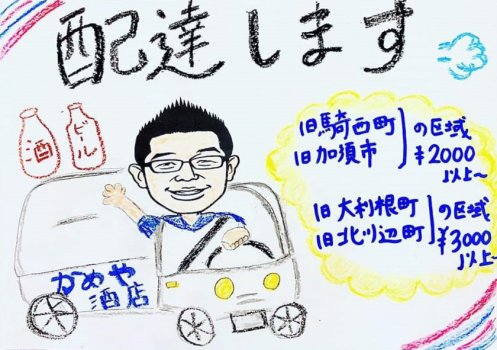 配達します
酒
ビール
旧騎西町
旧加須市
の区域
¥2000
以上〜
旧大利根町
旧北川辺町
の区域
¥3000
以上〜
かめや
酒店